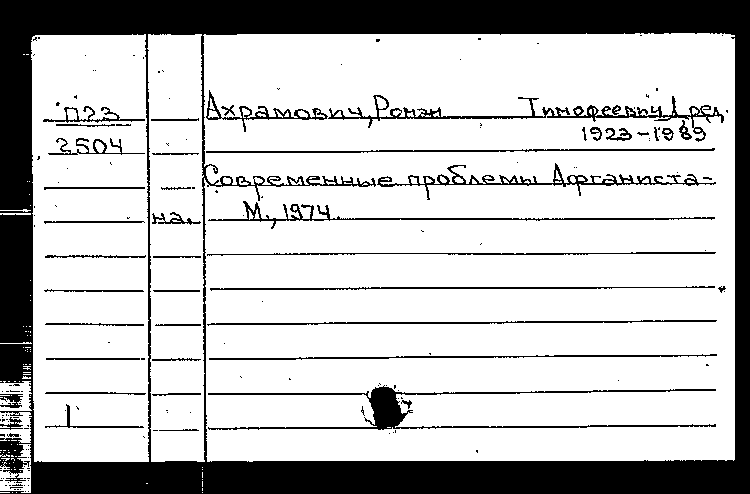 П23
2504
Ахрамович, Роман Тимофеевич, ред.
1923-1989
Современные проблемы Афганиста-
на. М., 1974.
1